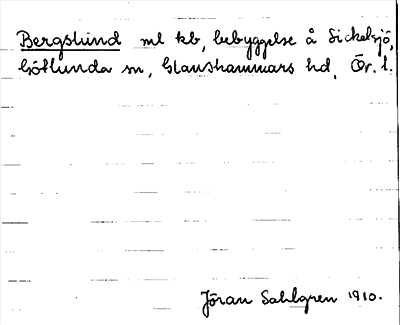 Bergslund ml kb, bebyggelse å Sickelsjö,
Götlunda sn, Glanshammars hd, Ör. l.
Jöran Sahlgren 1910.